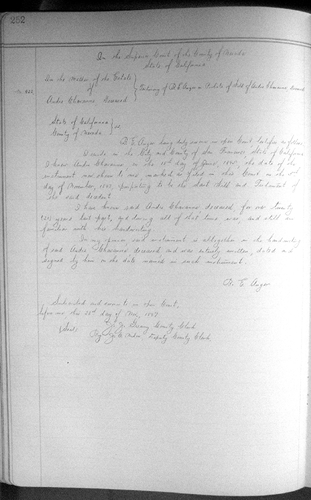 252
In the Superior Court of the County of Nevada
State of California
In the Matter of the Estate
of
Andre Chavanne deceased
Testimony of D. E. Auger in matter of Will of Andre Chavanne deceased
State of California
County of Nevada } ss
D. E. Auger being duly sworn in open Court testifies as follows
I reside in the City and County of San Francisco State of California
I knew Andre Chavanne on the 10th day of June, the date of the
instrument now shown to me, marked as filed in this Court on the
day of November, 1887, purporting to be the last Will and Testament of
the said deceased
I have known said Andre Chavanne deceased, for over twenty
years last past, and during all of that time was, and still am
familiar with his handwriting.
In my opinion said instrument is altogether in the handwriting
of said Andre Chavanne deceased and was entirely written, dated and
signed by him on the date named in such instrument.
D. E. Auger
Subscribed and sworn to in open Court,
before me this 28th day of Nov 1887
County Clerk
By Deputy County Clerk